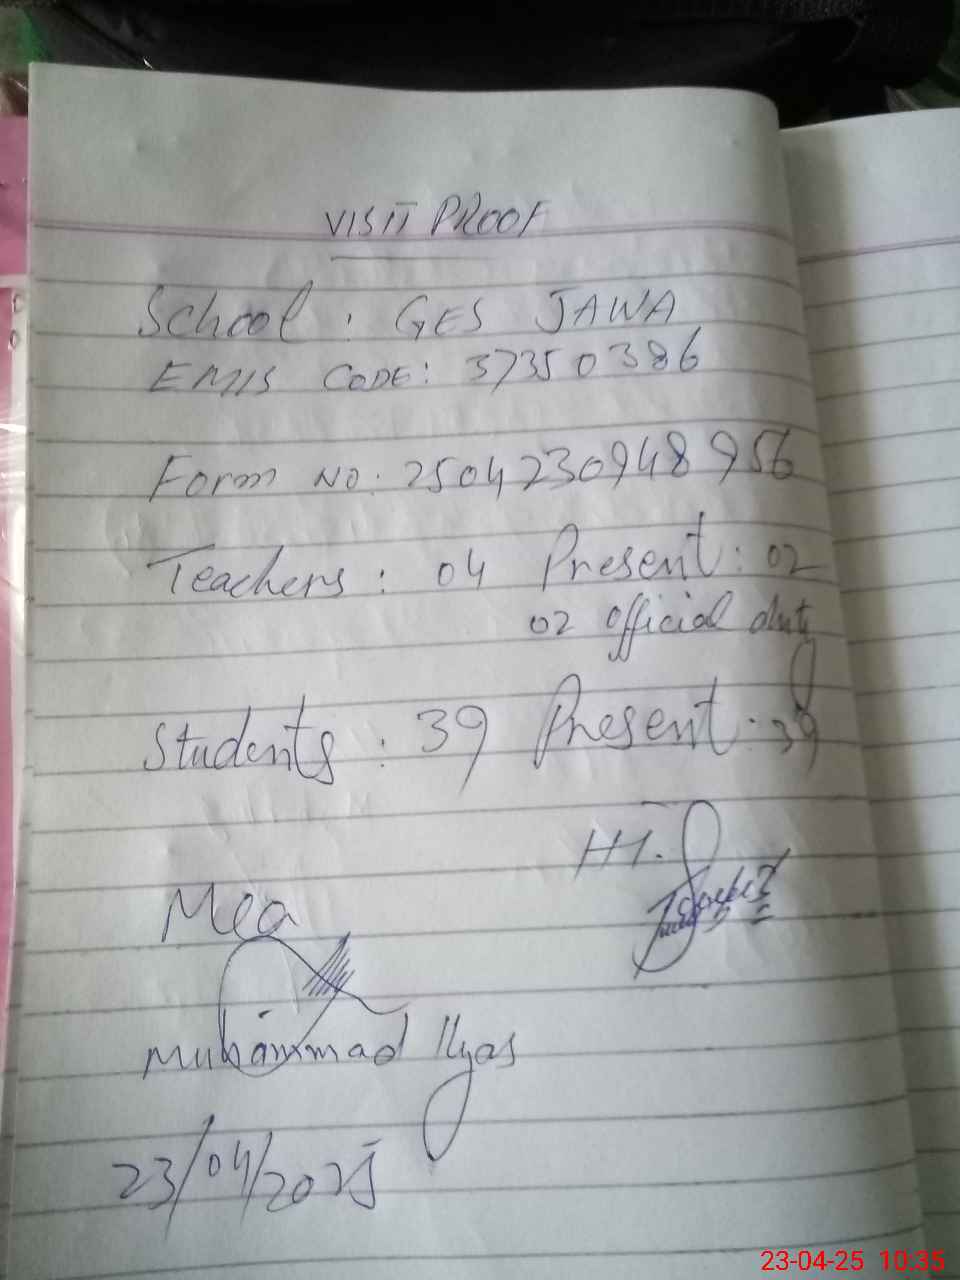 VISIT PROOF
School: GES JAWA
EMIS CODE: 37350386
Form No: 2504230948956
Teachers: 04 Present: 02
02 official duty
Students: 39 Present: 39
HT.
Mea
Muhammad Ilyas
23/04/2025
23-04-25 10:35